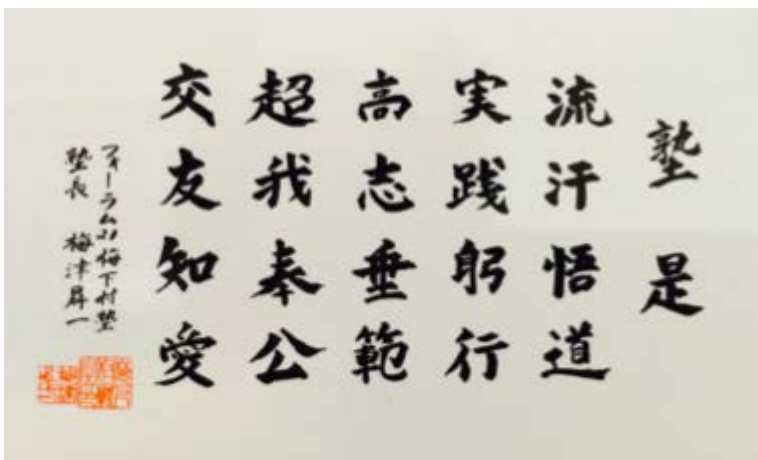 塾是
流汗悟道
実践躬行
高志垂範
超我奉公
交友知愛
フォーラム21梅下村塾
塾長 梅津昇一